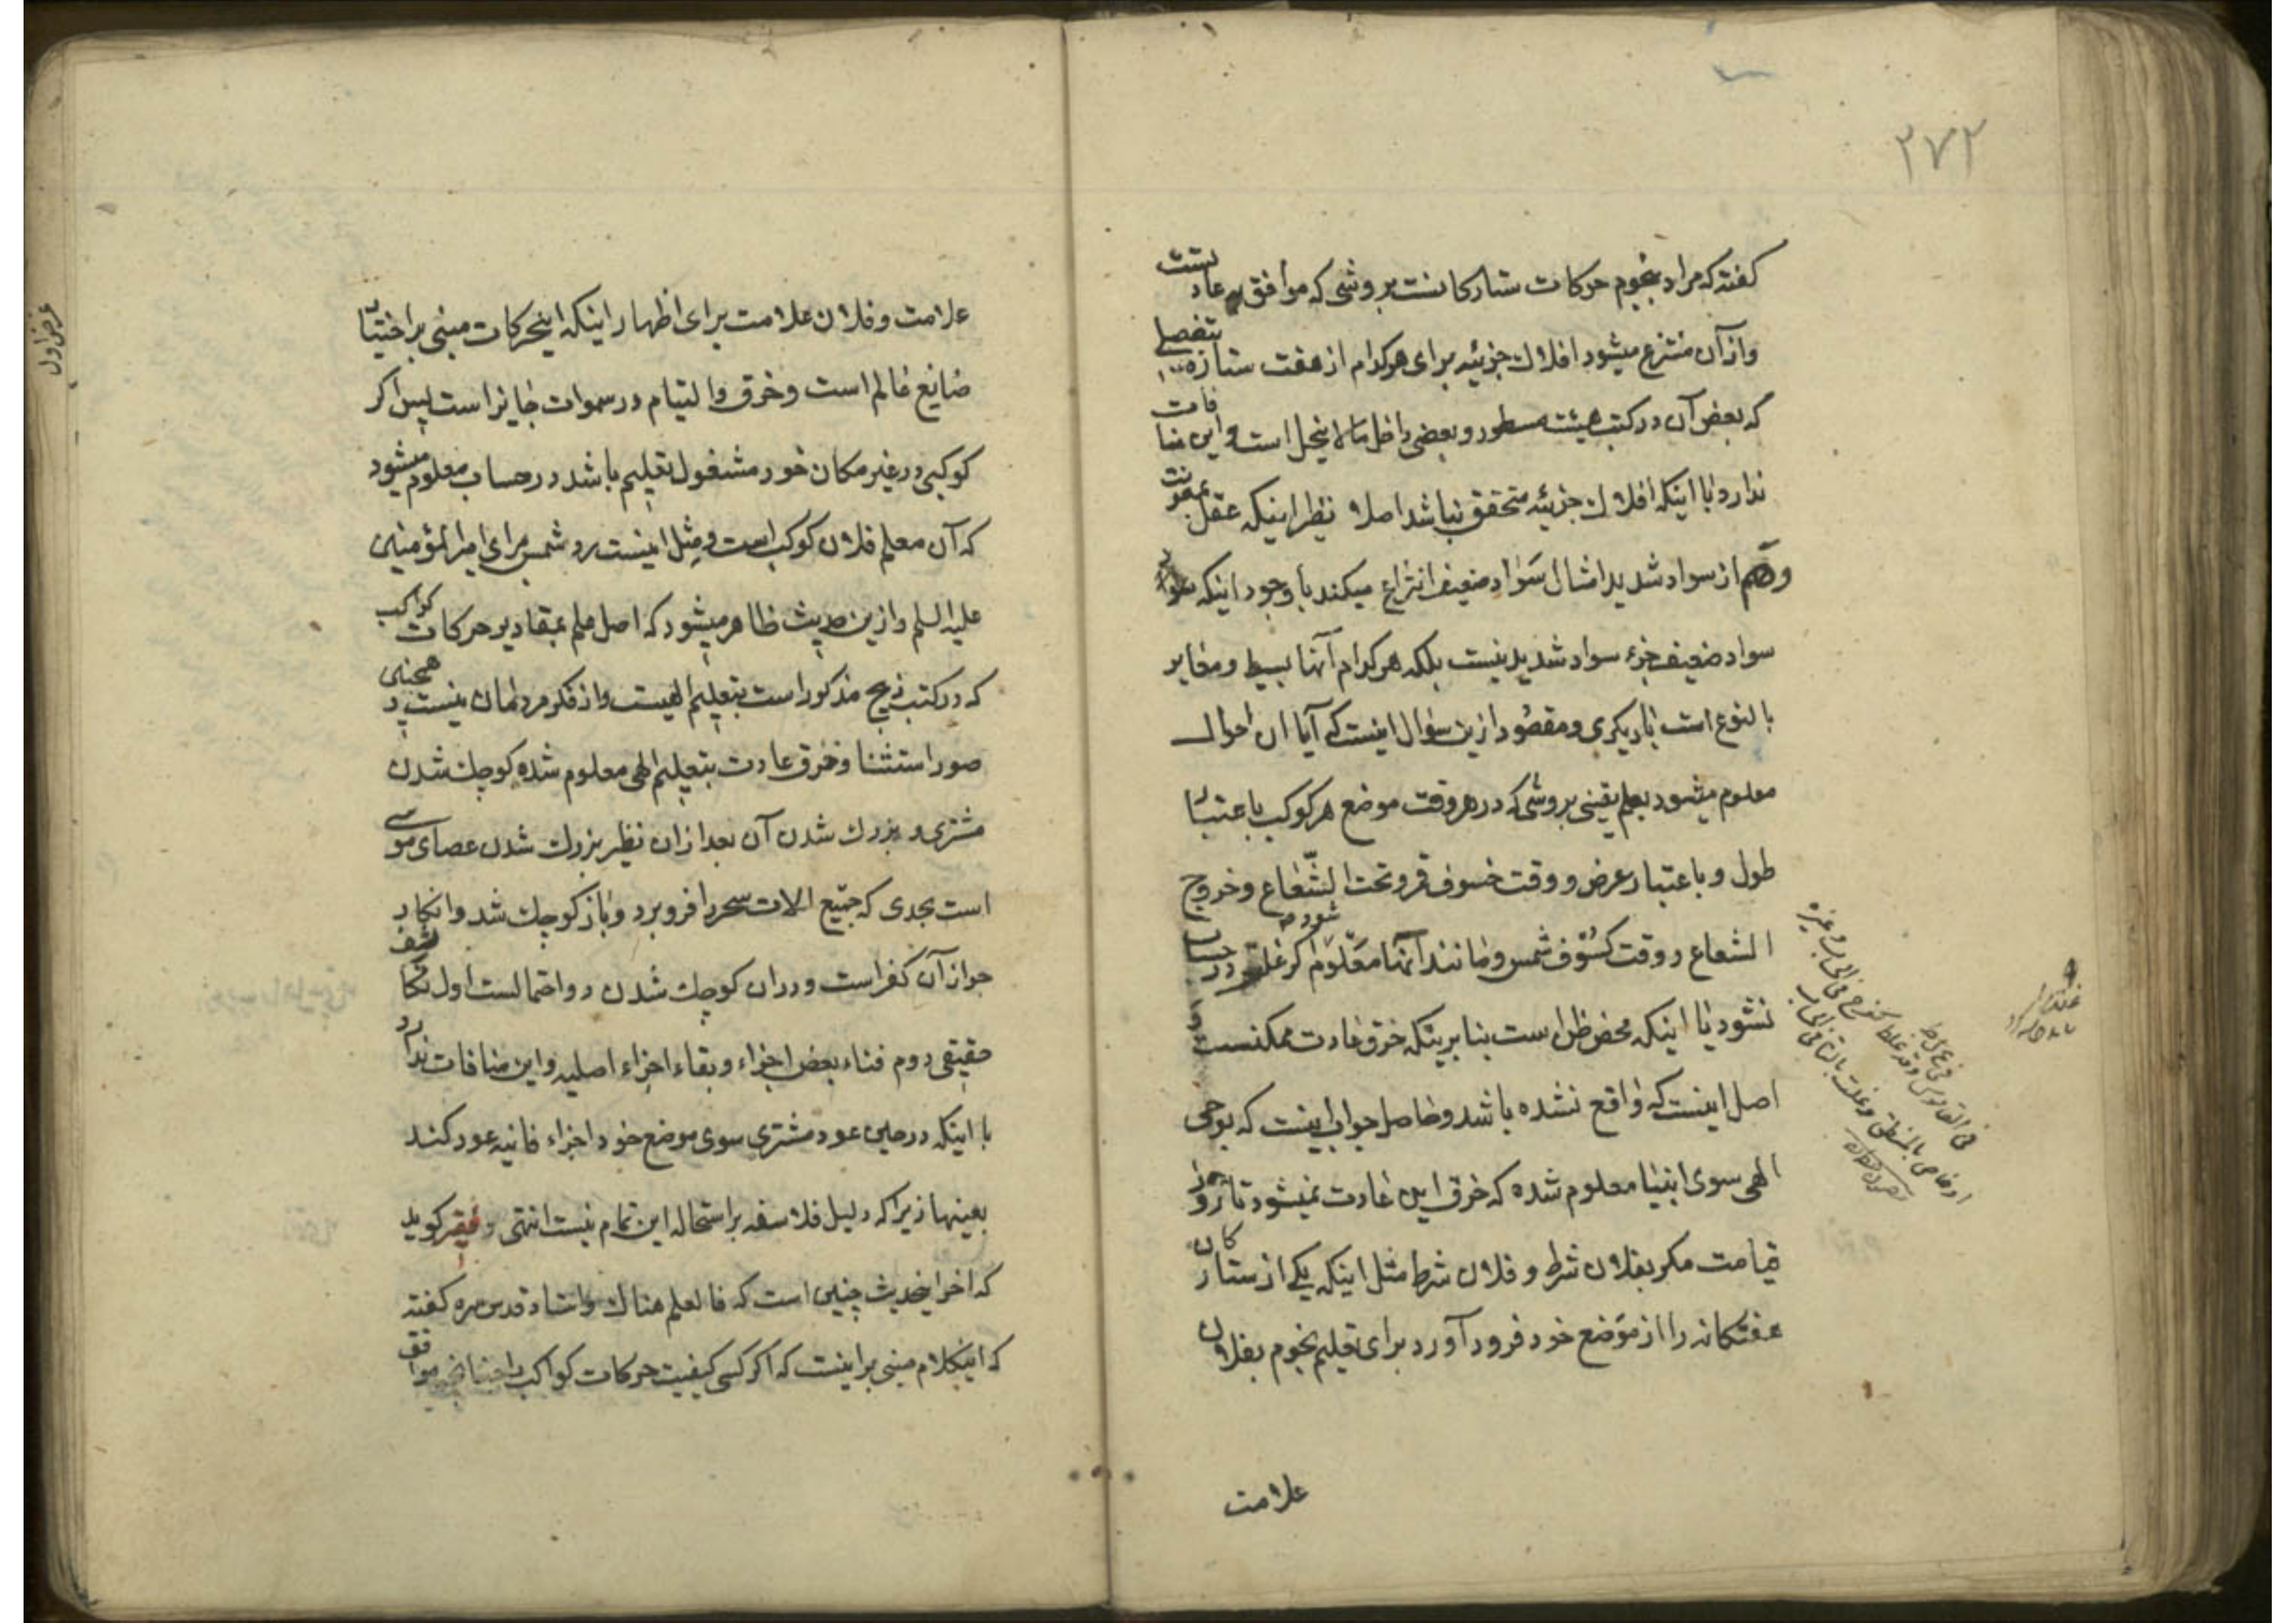 ۲۷۲
کفته که مراد بنجوم حرکات ستارکانست بروشی که موافق عادتست
وازآن منتزع میشود افلاك جزئیه برای هرکدام از هفت ستاره بتفصیلی
که بعض آن در کتب هیئت مسطور و بعضی داخل مالاینحل است واین منافات
ندارد باا اینکه افلاك جزئیه متحقق نباشد اصلا نظیر اینکه عقل بمعونت
وهم از سواد شدید امثال سواد ضعیف انتزاع میکند باوجود اینکه
سواد ضعیف جزء سواد شدید نیست بلکه هرکدام آنها بسیط ومغایر
بالنوع است بادیکری ومقصود ازین سؤال اینست که آیا ان احوال
معلوم میشود بعلم یقینی بروشی که در هروقت موضع هرکوکب باعتبار
طول وباعتبار عرض ووقت خسوف قمر وتحت الشعاع وخروج
الشعاع ووقت کسوف شمس ومانند آنها معلوم شود که غلط در حساب
نشود یا اینکه محض ظن است بنابرینکه خرق عادت ممکنست
اصل اینست که واقع نشده باشد وحاصل جواب اینست که بوحی
الهی سوی انبیا معلوم شده که خرق این عادت نمیشود تا روز
قیامت مکر بفلان شرط و فلان شرط مثل اینکه یکی از ستارکان
هفتکانه را از موضع خود فرود آورد برای تعلیم نجوم بفلان
علامت
غرض اول
علامت وفلان علامت برای اظهار اینکه اینحرکات مبنی براختیار
صانع عالم است وخرق والتیام در سموات جایز است پس اکر
کوکبی در غیر مکان خود مشغول تعلیم باشد در حساب معلوم میشود
که آن معلم فلان کوکب است ومثل اینست رد شمس برای امیرالمؤمنین
علیه السلم وازین حدیث ظاهر میشود که اصل علم بمقادیر حرکات کواکب
که در کتب زیج مذکور است بتعلیم الهیست واز فکر مردمان نیست همچنین
صور استثنا وخرق عادت بتعلیم الهی معلوم شده کوچك شدن
مشتری وبزرك شدن آن بعد ازان نظیر بزرك شدن عصای موسی
است بحدی که جمیع الات سحر را فرو برد وباز کوچك شد وانکار
جواز آن کفر است ودران کوچك شدن دو احتمالست اول تکاثف
حقیقی دوم فناء بعض اجزاء وبقاء اجزاء اصلیه واین منافات ندارد
با اینکه درحین عود مشتری سوی موضع خود اجزاء فانیه عود کنند
بعینها زیراکه دلیل فلاسفه براستحاله این تمام نیست انتهی وفقیر کوید
که اخر اینحدیث چنین است که فالعلم هناك واستاد قدس سره کفته
که اینکلام مبنی براینست که اکر کسی کیفیت حرکات کواکب